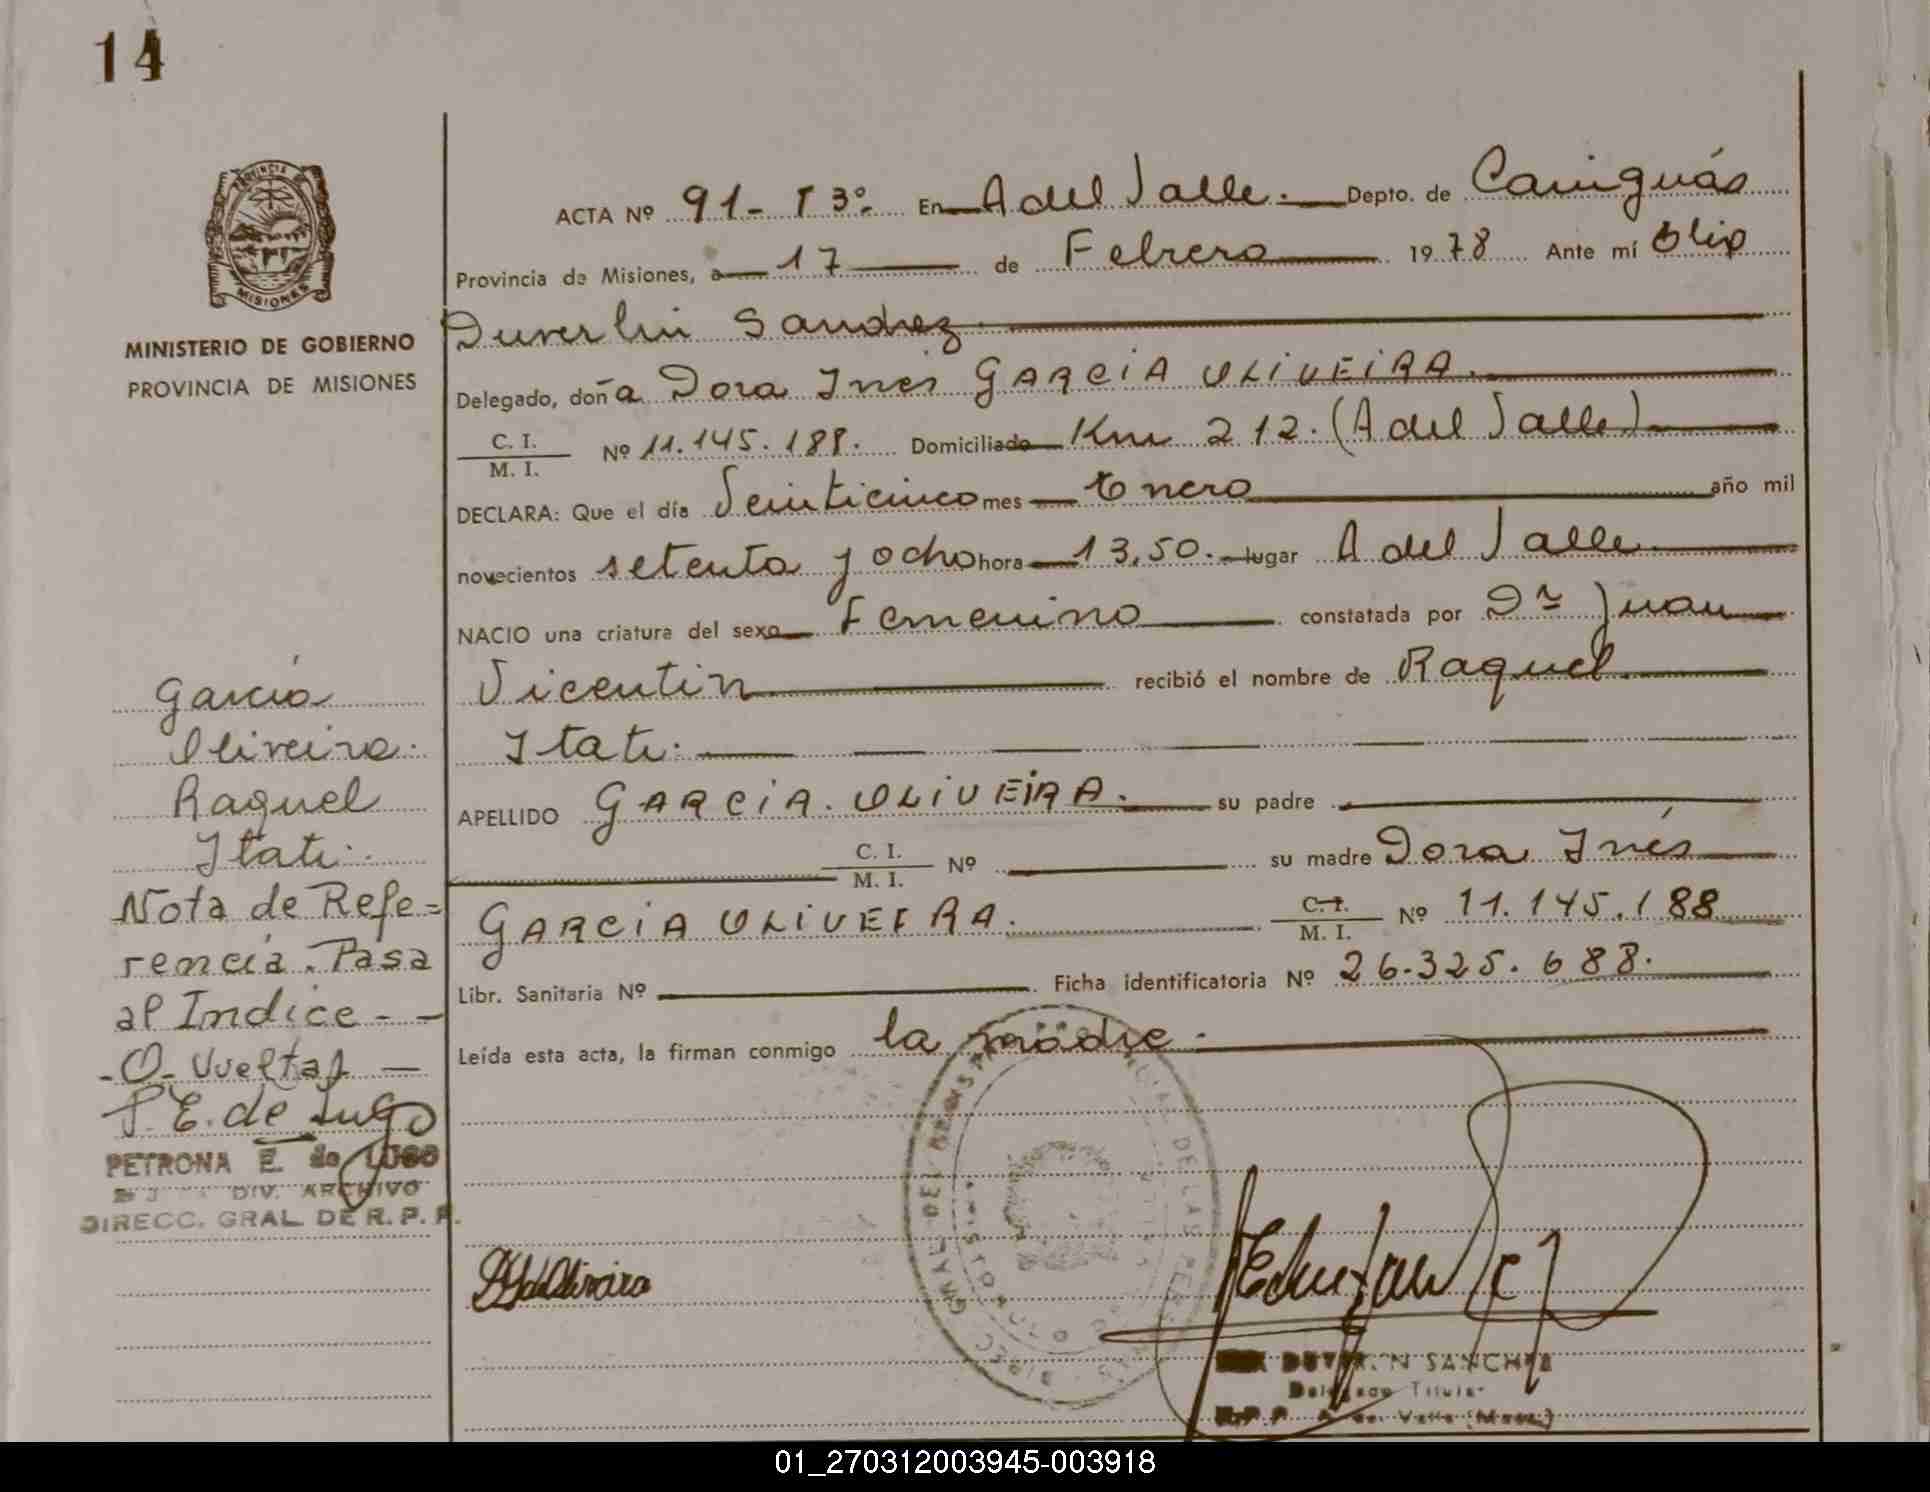 14
PROVINCIA DE
MISIONES
MINISTERIO DE GOBIERNO
PROVINCIA DE MISIONES
ACTA Nº 91 - T 3º. En A del Valle. Depto. de Cainguás
Provincia de Misiones, a 17 de Febrero 1978 Ante mí Elio
Duverlin Sanchez.
Delegado, doña Dora Ines GARCIA OLIVEIRA.
C. I.
M. I. Nº 11.145.188. Domiciliado Km 212. (A del Valle)
DECLARA: Que el día Veinticinco mes Enero año mil
novecientos setenta y ocho hora 13,50. lugar A del Valle.
NACIO una criatura del sexo Femenino constatada por Dr Juan
Vicentin recibió el nombre de Raquel
Itati.
APELLIDO GARCIA. OLIVEIRA. su padre
C. I.
M. I. Nº su madre Dora Inés
GARCIA OLIVEIRA. C. I.
M. I. Nº 11.145.188
Libr. Sanitaria Nº Ficha identificatoria Nº 26.325.688.
Leída esta acta, la firman conmigo la madre.
Garcia
Oliveira.
Raquel
Itati.
Nota de Refe=
rencia. Pasa
al Indice - -
-O- Vueltas —
P. E. de Lugo
PETRONA E. de LUGO
DIV. ARCHIVO
DIRECC. GRAL. DE R. P. P.
DUVERLIN SANCHEZ
Delegado Titular
R.P.P. A. del Valle (Mnes.)
01_270312003945-003918